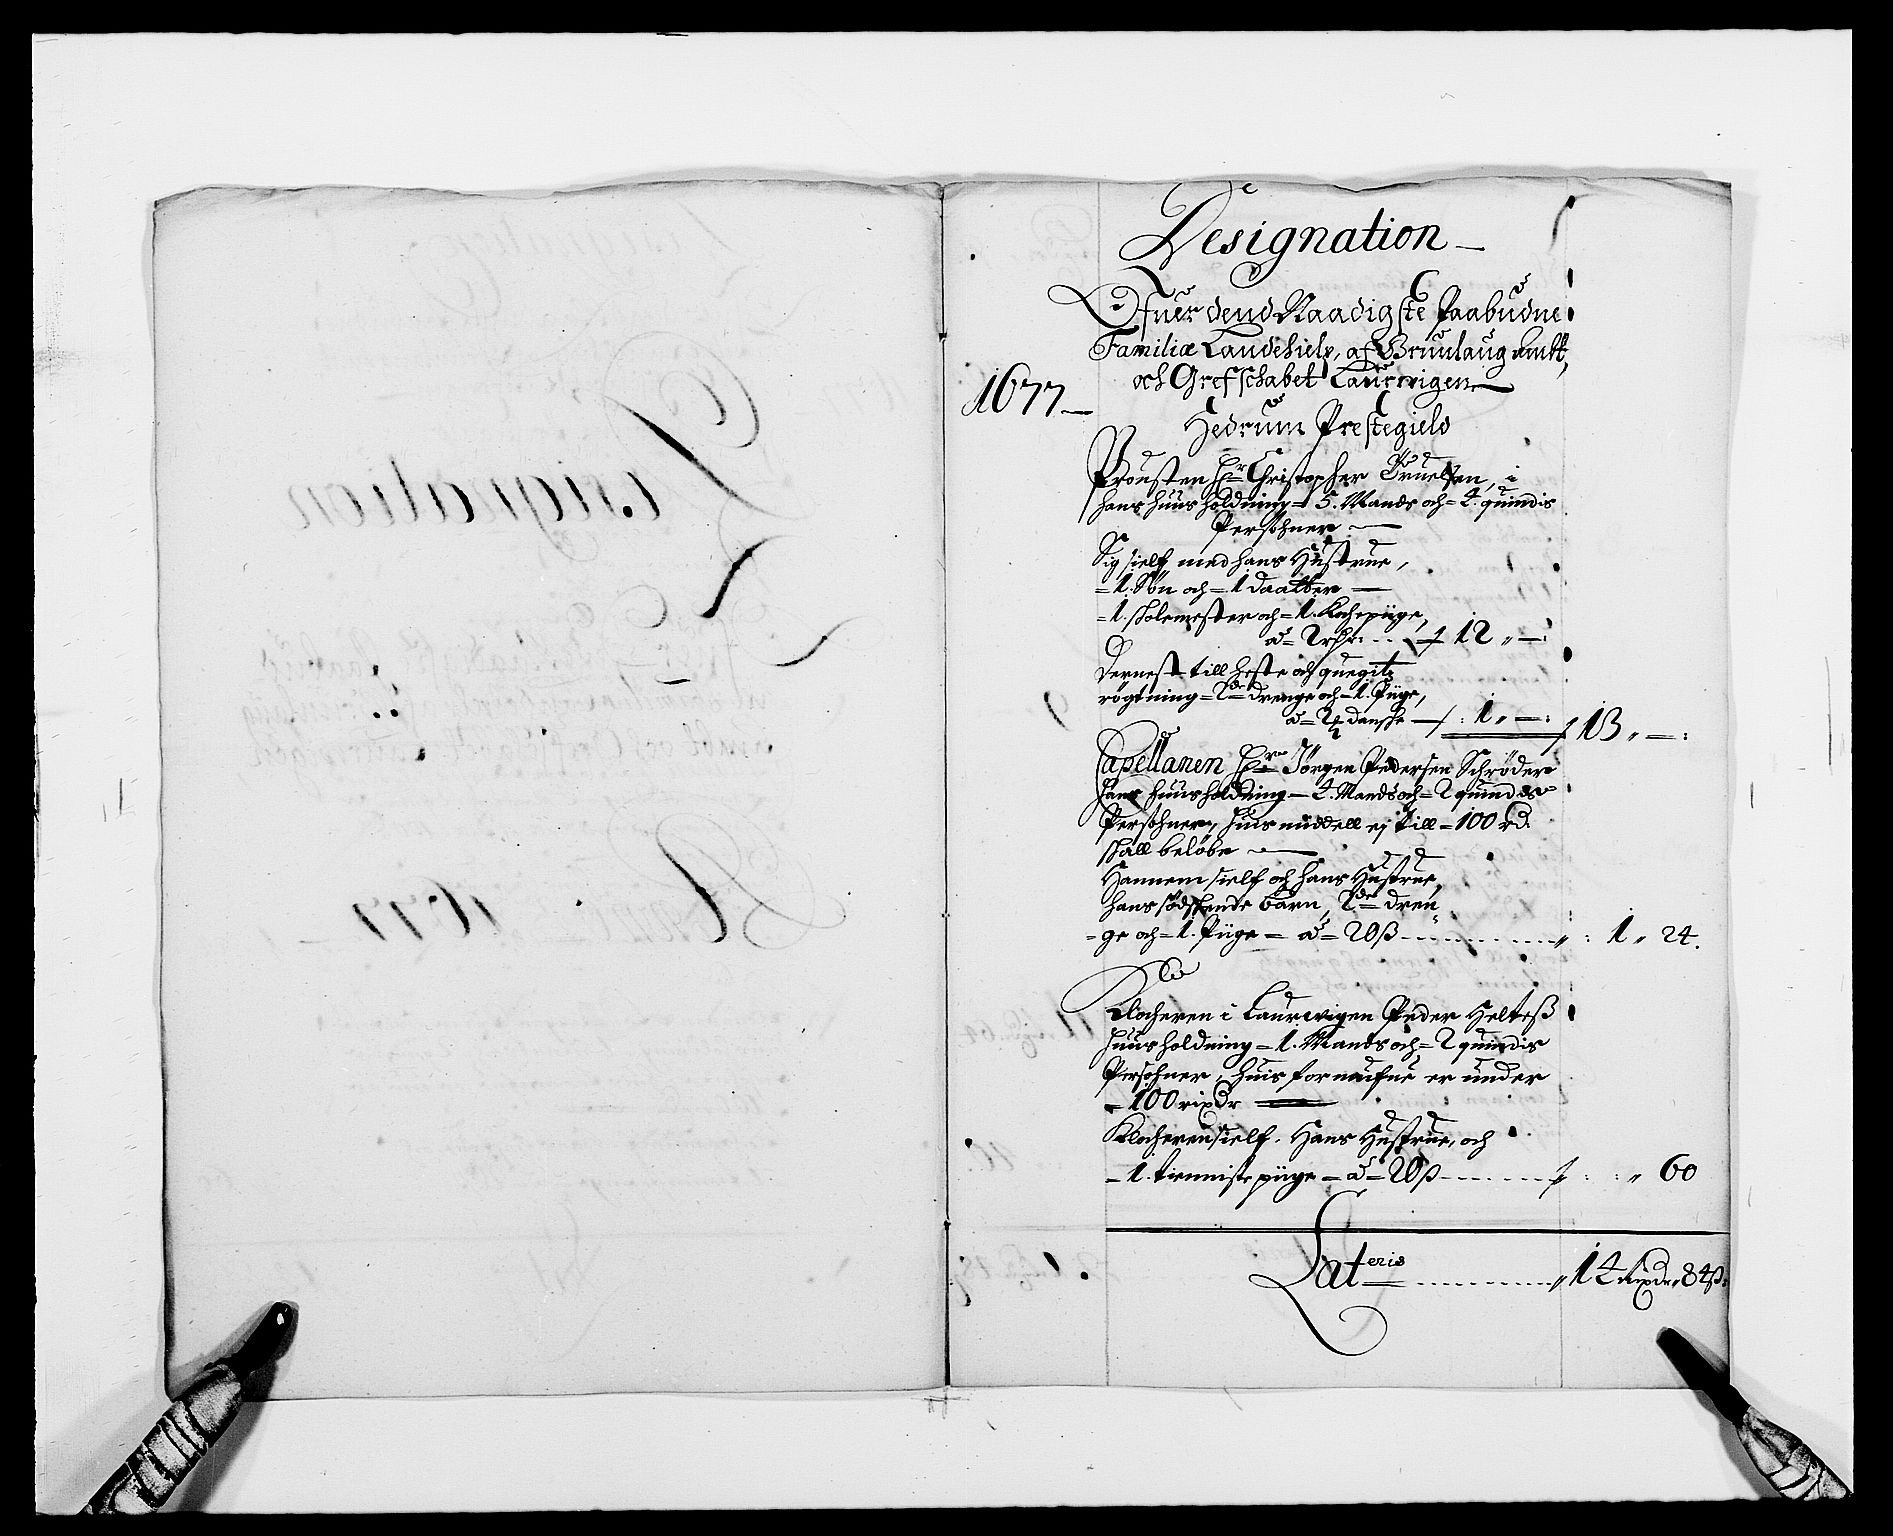 Designation
Ofuer dend Naadigste Paabudne
Familiæ Landehielp, af Brunlaug Ambt,
och Grefschabet Laurwigen
1677
Hedrum Prestegield
Prousten Hr Christopher Truelsen, i
hans huusholdning = 5. Mands och = 4. quindis
Persohner
Sig sielf med hans Hustrue,
= 1. Søn och = 1 daatter
= 1. skolemester och = 1. Kockepiige,
a = 2 rdr: 12 " - :
Dernest till heste och quegits
røgtning = 2de drenge och = 1. Piige,
a = 2 danske : 1 " - : 13 " - :
Capellanen Hr Jørgen Pedersen Schrøder
hans huusholdning = 4. Mands och = 2 quindis
Persohner, huis middell ej till = 100 rd.
skall beløbe
Hannem sielf och hans Hustrue,
hans sødskende barn, 2de dren
= ge och = 1. Piige = a = 20 ß : 1 " 24.
Klocheren i Laurwigen Peder Helteß
huusholdning = 1. Mands och = 2 quindis
Persohner, huis formufue er under
= 100 rixdr
Klocheren sielf. Hans Hustrue, och
= 1. tienniste piige = a = 20 ß : : " 60
Lateris 14 rixdr 84 ß: